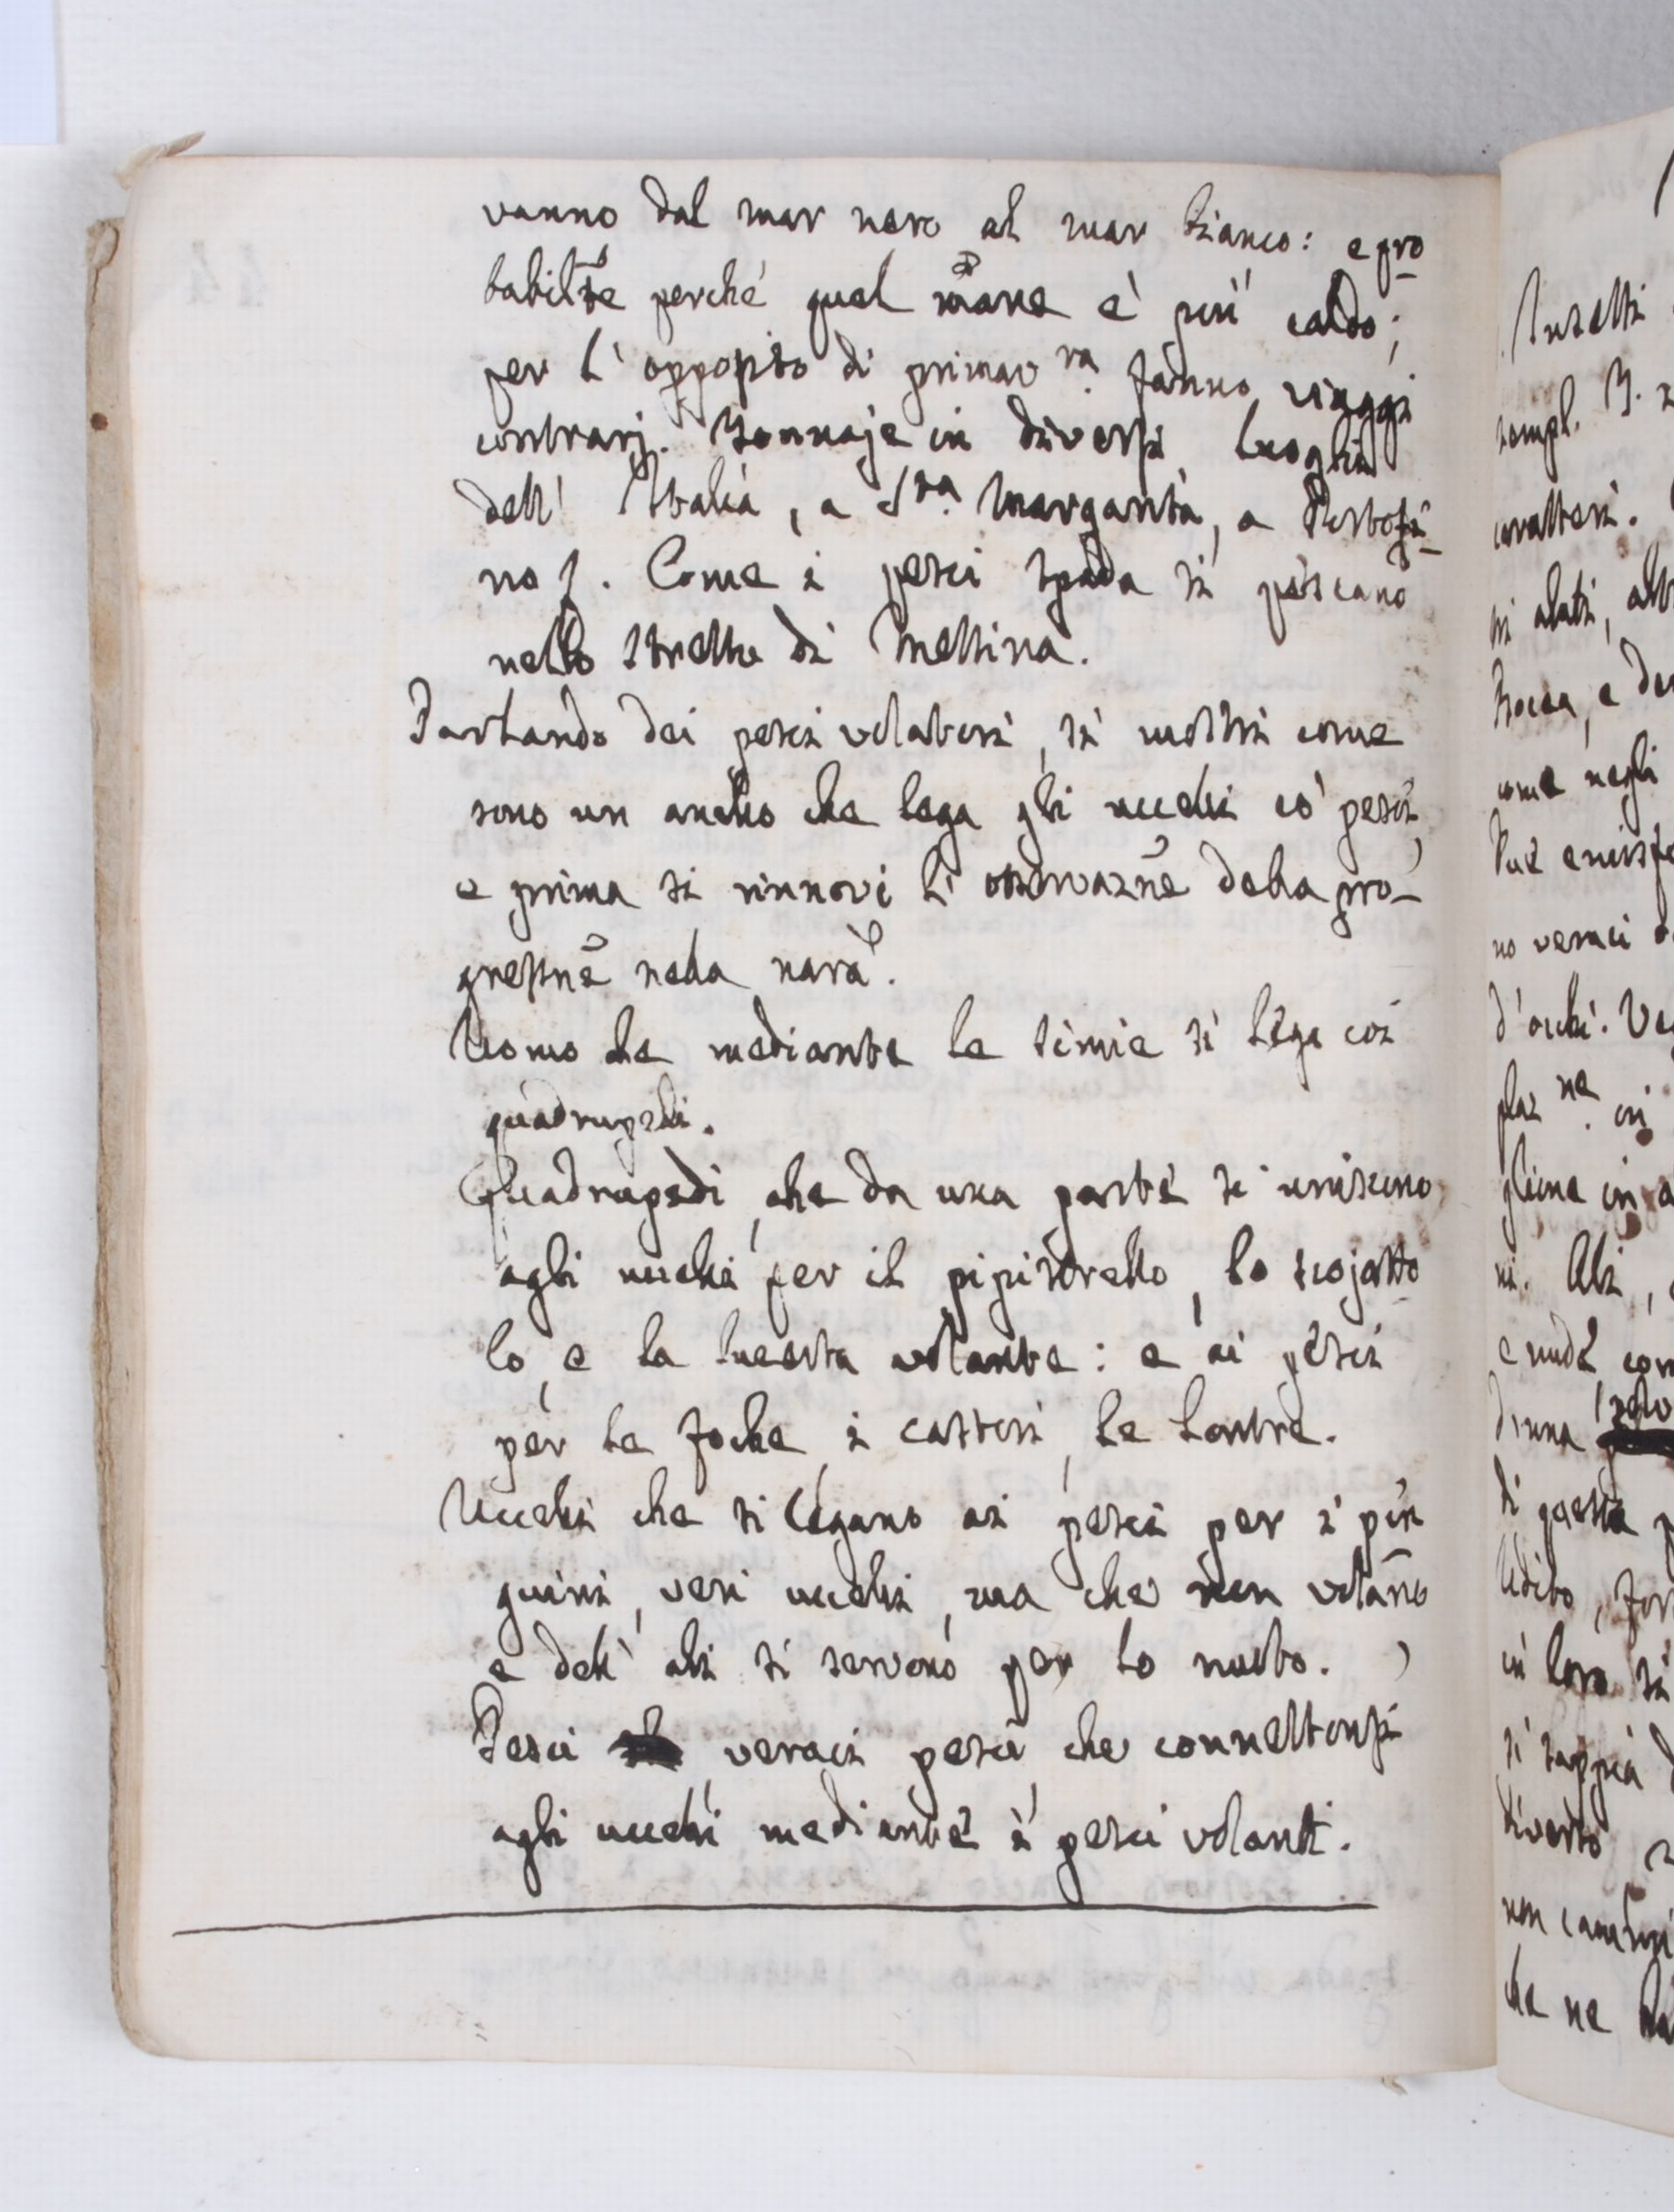 vanno dal mar nero al mar bianco: e pro
babilte perché quel mare è più caldo;
per l'opposito di primavra. fanno viaggi
contrarj. Tonnaje in diversi luoghi
dell' Italia, a Sta. Margarita, a Portofi
no. Come i pesci spada si péscano
nello stretto di Messina.
Parlando dei pesci volatori, si mostri come
sono un anello che lega gli uccelli co' pesci,
e prima si rinnovi l'osservazne della pro-
gressne nella nara.
Uomo che mediante le simie si lega coi
quadrupedi.
Quadrupedi, che da una parte si uniscono
agli uccelli per il pipistrello, lo scojatto
lo, e la lucerta volante: e ai pesci
per le foche, i castori, le lontre.
Uccelli che si légano ai pesci per i pin
guini, veri uccelli, ma che non volano
e dell' ali si servono per lo nuoto.
Pesci veraci pesci che connettonsi
agli uccelli mediante i pesci volanti.
Insetti
compl.
caratteri.
si alati,
come negli
no veraci
d'occhi.
in
ni. Ali,
e nude,
di questa
Udito,
in loro si
si sappia
diverso
non
che ne